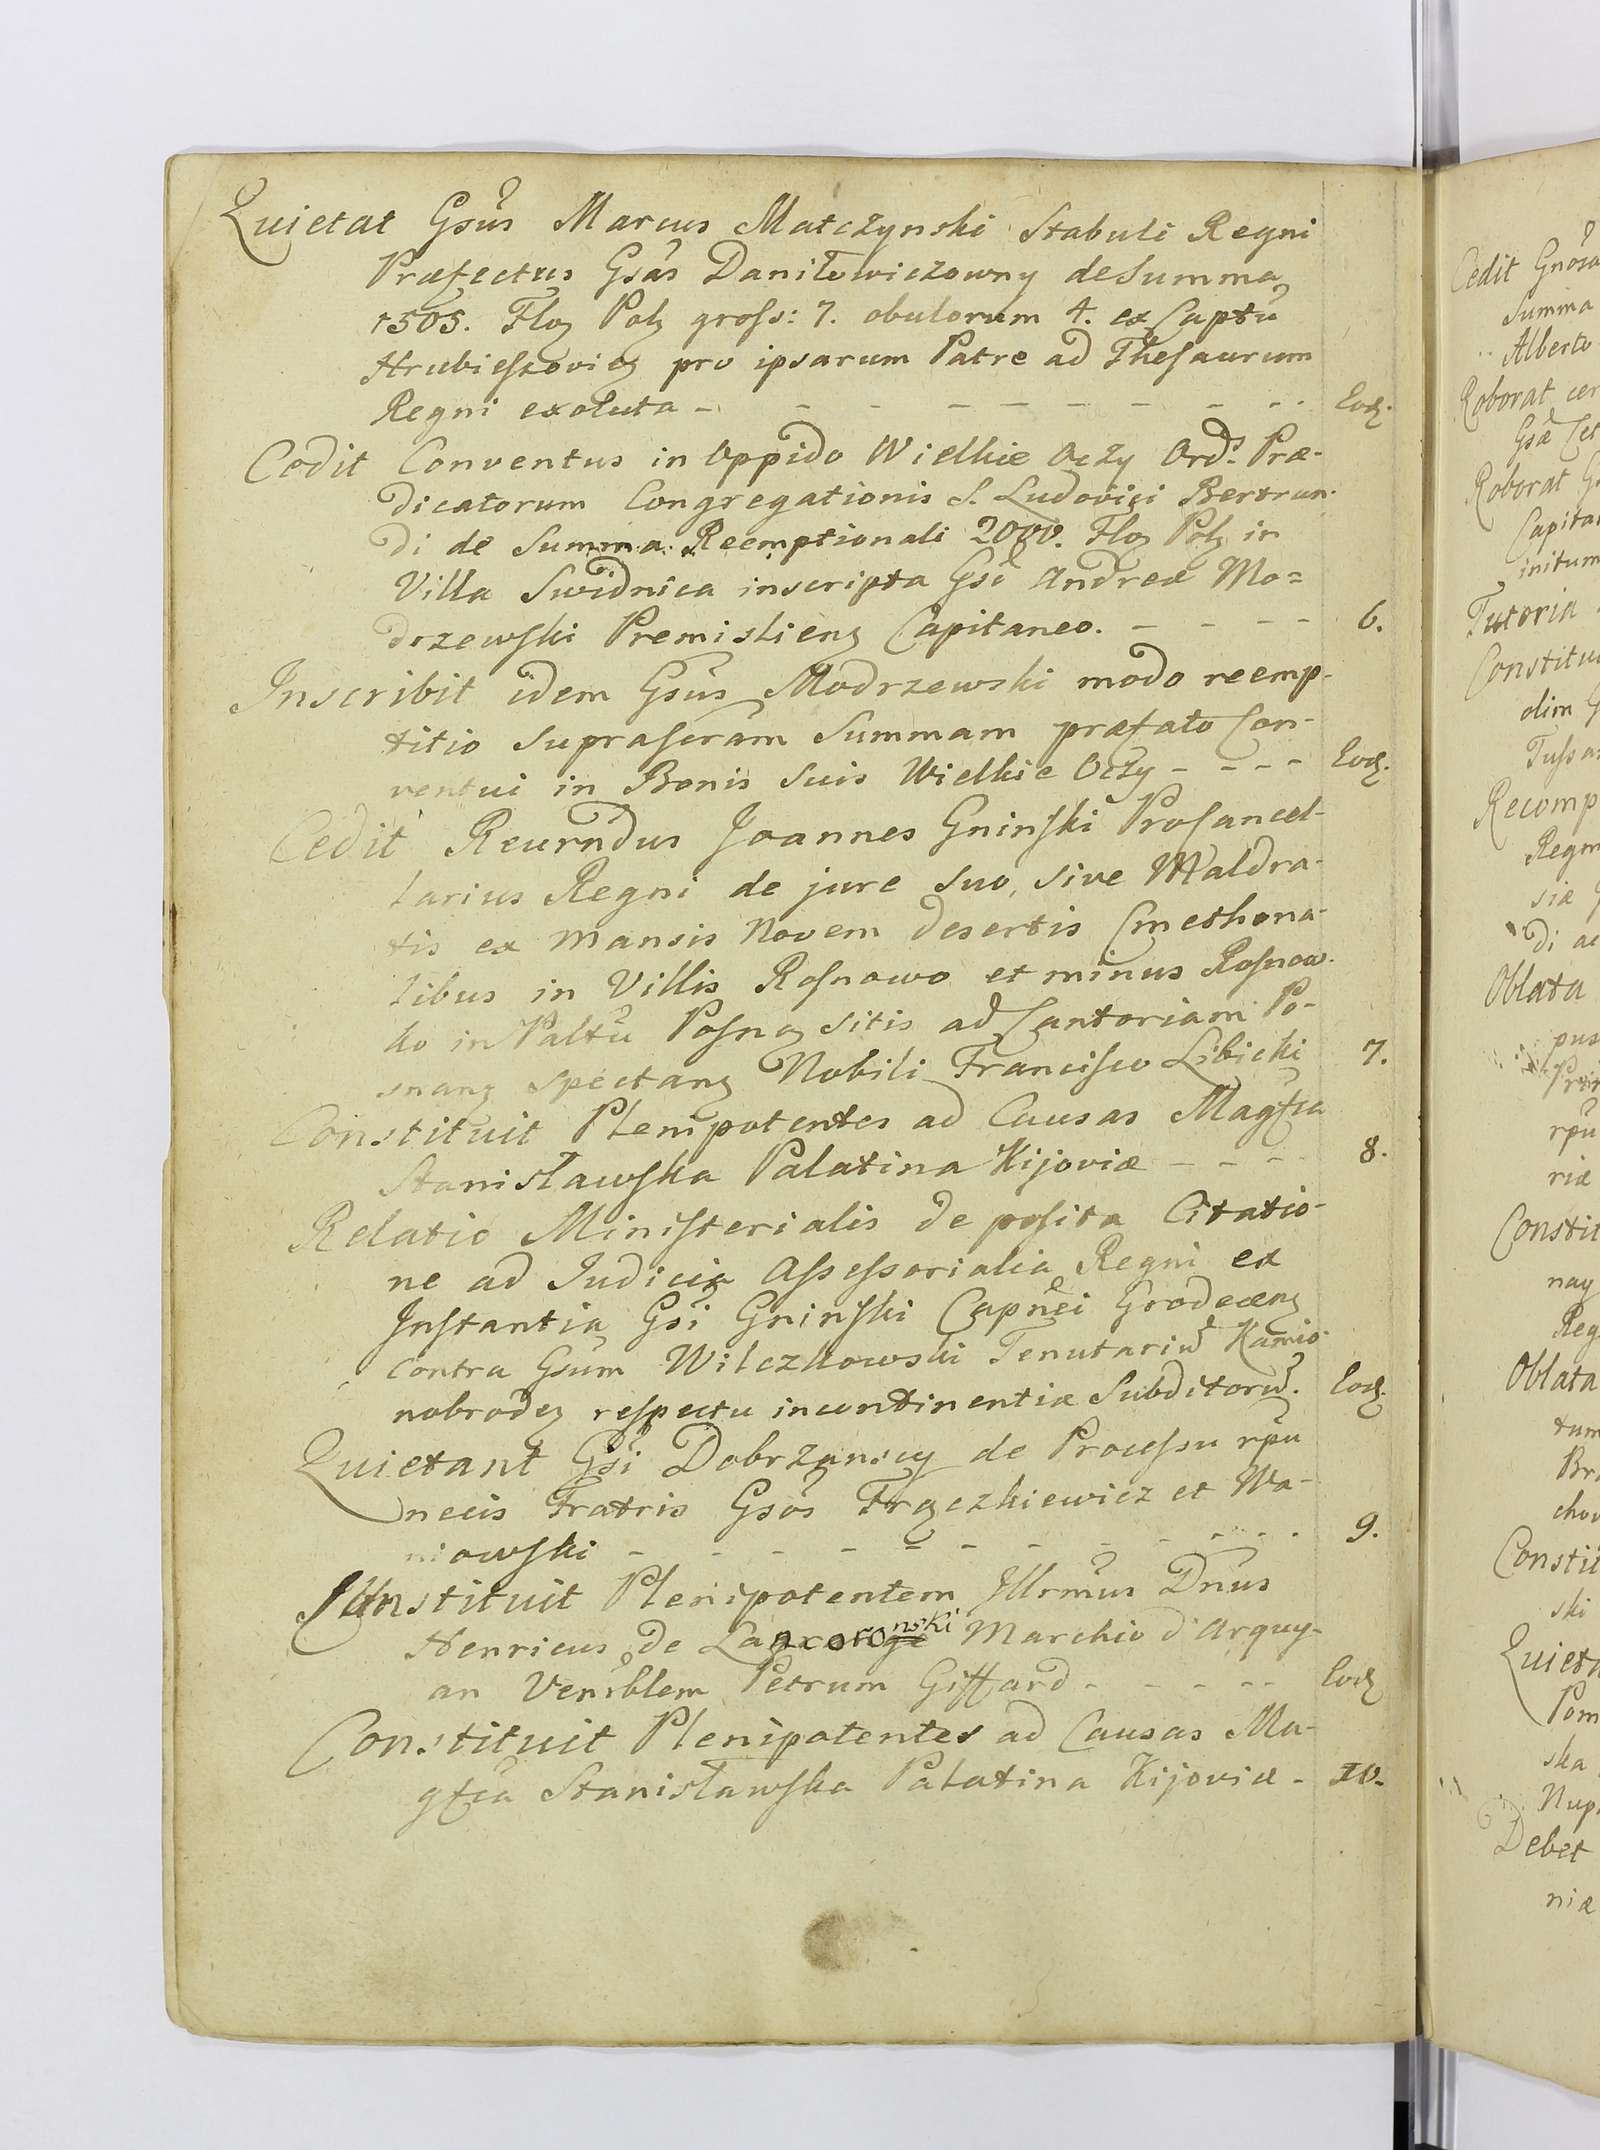 Quietat Gsus Marcus Matczynski Stabuli Regni
Præfectus Gsas Daniłowiczowny de Summa
1505. Floꝫ Polꝫ gross: 7. obulorum 4. ex Captu
Hrubieszovieꝫ pro ipsarum Patre ad Thesaurum
Regni exoluta - - - - - - - - - Eodꝫ.
Cedit Conventus in Oppido Wielkie Oczy Ord. Præ-
dicatorum Congregationis S. Ludovici Bertran-
di de Summa Reemptionali 2000. Floꝫ Polꝫ in
Villa Swidnica inscripta Gsi Andreæ Mo=
drzewski Premislienꝫ Capitaneo. - - - - 6.
Inscribit idem Gsus Modrzewski modo reemp-
titio supraseram Summam præfato Con-
ventui in Bonis suis Wielkie Oczy - - - - Eodꝫ.
Cedit Reurndus Joannes Gninski Procancel-
larius Regni de jure suo, sive Maldra-
tis ex mansis Novem desertis Cmethona-
libus in Villis Rosnowo et minus Rosnow-
ko in Paltu Posnaꝫ sitis ad Cantoriam Po-
snanꝫ spectanꝫ Nobili Francisco Libicki 7.
Constituit Plenipotentes ad Causas Magfca
Stanisławska Palatina Kijoviæ - - - - 8.
Relatio Ministerialis de posita Citatio-
ne ad Judicia Assessorialia Regni ex
Instantia Gsi Gninski Capnei Grodecenꝫ
contra Gsum Wilczkowski Tenutariu Kamio-
nobrodeꝫ respectu incontinentiæ Subditoru. Eodꝫ.
Quietant Gsi Dobrzanscy de Processu rpu
necis Fratris Gsos Frączkiewicz et Wa-
niowski - - - - - - - - - - 9.
Constituit Plenipotentem Illrmus Dnus
Henricus de Lanckoronski Marchio d'Arquy-
an Venrblem Petrum Giffard - - - - - Eodꝫ
Constituit Plenipotentes ad Causas Ma-
gfca Stanisławska Palatina Kijoviæ - 10.
Cedit
Summa
Alberto
Roborat
Roborat
Tutoria
olim
Oblata
riæ
Oblata
ski
ska
Debet
niæ